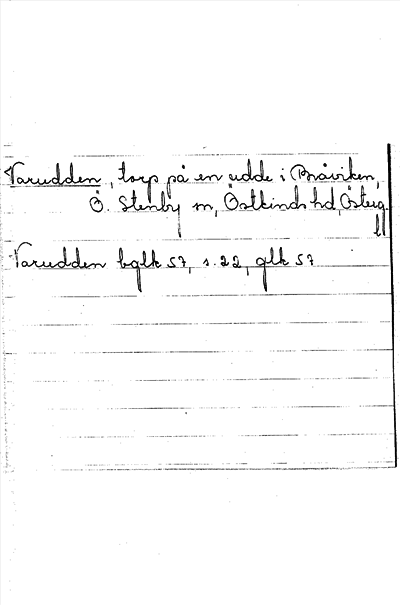 Varudden, torp på en udde i Bråviken,
Ö. Stenby sn, Östkinds hd, Österg.
ll
Varudden bglk 57, s. 22, glk 57